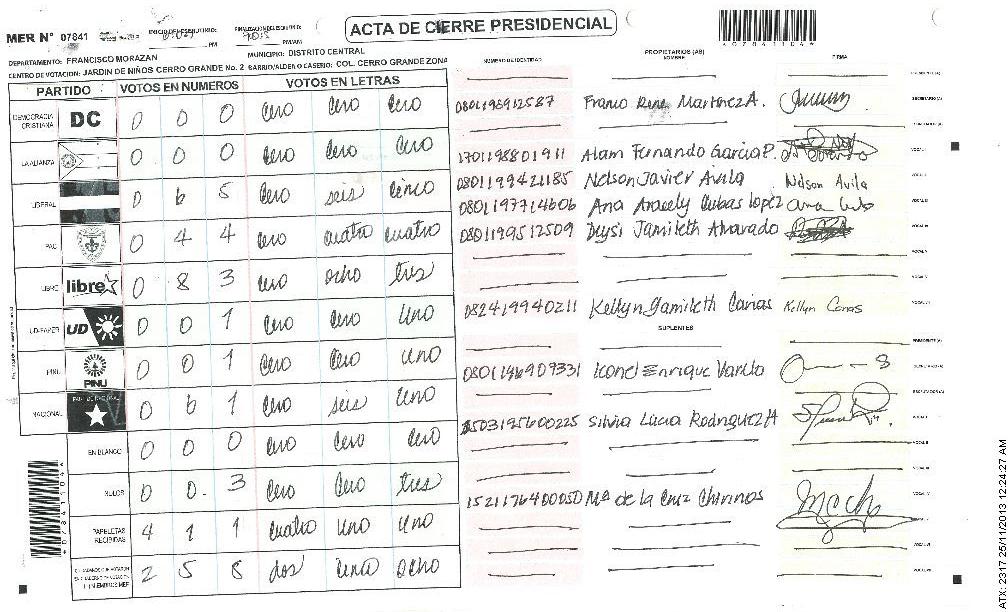 ACTA DE CIERRE PRESIDENCIAL
MER N° 07841
PM
PM/AM
*07841104*
DEPARTAMENTO: FRANCISCO MORAZAN
MUNICIPIO: DISTRITO CENTRAL
CENTRO DE VOTACION: JARDIN DE NIÑOS CERRO GRANDE No. 2 BARRIO/ALDEA O CASERIO: COL. CERRO GRANDE ZONA
PARTIDO VOTOS EN NUMEROS VOTOS EN LETRAS
DEMOCRACIA CRISTIANA DC 0 0 0 cero cero cero
LA ALIANZA 0 0 0 cero cero cero
LIBERAL 0 6 5 cero seis cinco
PAC 0 4 4 cero cuatro cuatro
LIBRE libre 0 8 3 cero ocho tres
UD-FAPER UD 0 0 1 cero cero uno
PINU PINU 0 0 1 cero cero uno
NACIONAL 0 6 1 cero seis uno
EN BLANCO 0 0 0 cero cero cero
NULOS 0 0 3 cero cero tres
PAPELETAS RECIBIDAS 4 1 1 cuatro uno uno
2 5 8 dos cinco ocho
NUMERO DE IDENTIDAD PROPIETARIOS (AS) NOMBRE FIRMA
PRESIDENTE (A)
0801198912587 Franco Rene Martinez A. SECRETARIO (A)
1701198801911 Alam Fernando Garcia P. VOCAL I
0801199421185 Nelson Javier Avila Nelson Avila
0801197714606 Ana Aracely Cubas Lopez
0801199512509 Deysi Jamileth Alvarado
082419940211 Kellyn Jamileth Canas Kellyn Canas
SUPLENTES
PRESIDENTE (A)
0801146909331 Leonel Enrique Varillo
0503195600225 Silvia Lucia Rodriguez A
1521176400050 Mª de la Cruz Chirinos
*07841104*
ATX: 2317 25/11/2013 12:24:27 AM